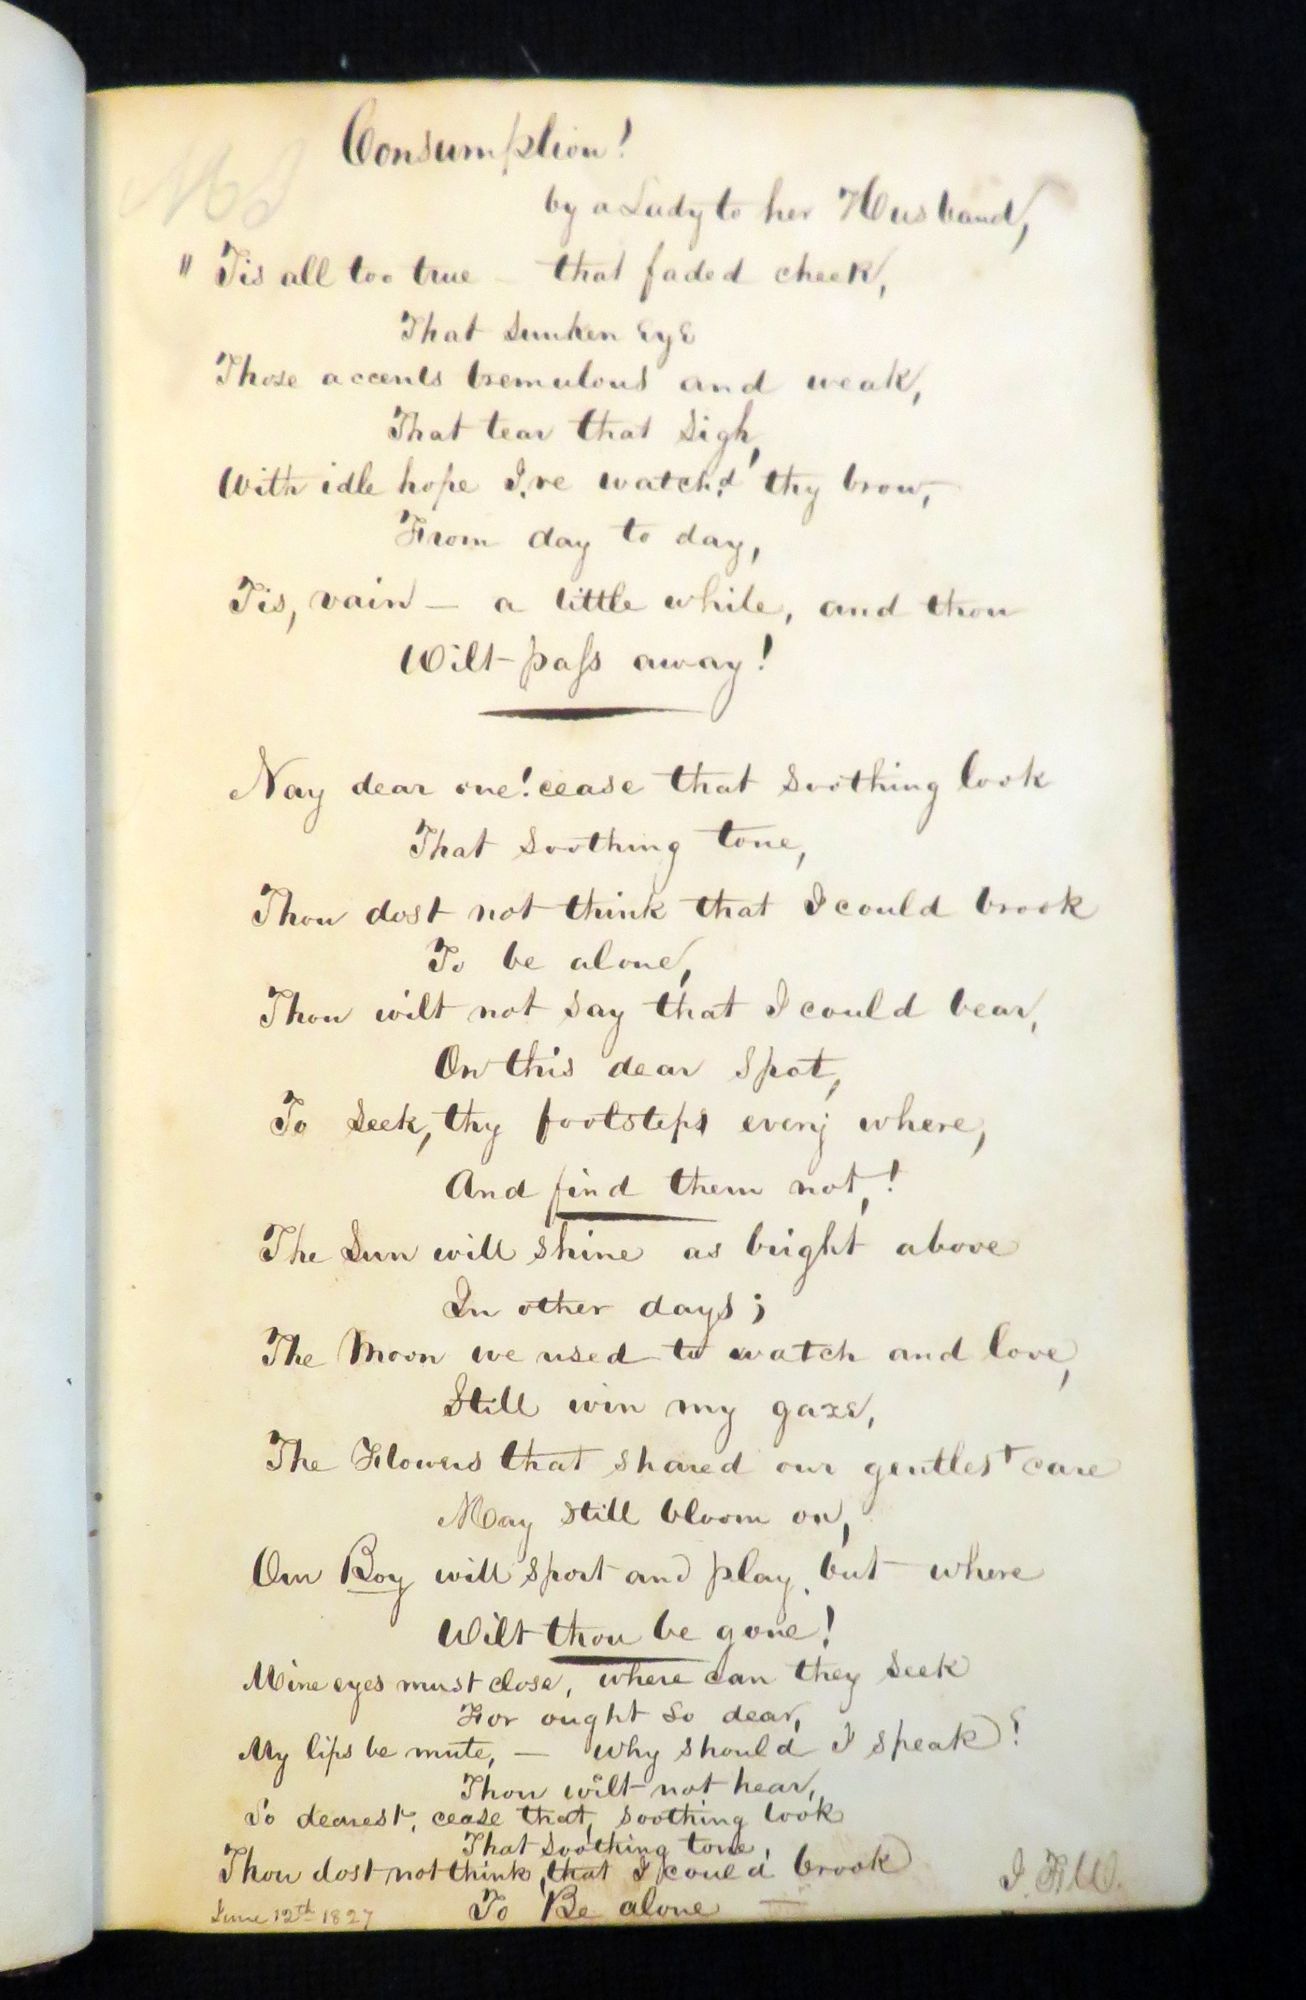 MS
Consumption!
by a Lady to her Husband,
" Tis all too true – that faded cheek,
That Sunken EyE
Those accents tremulous and weak,
That tear that Sigh,
With idle hope I've watch'd thy brow,
From day to day,
Tis, vain – a little while, and thou
Wilt paſs away!
Nay dear one! cease that Soothing look
That Soothing tone,
Thou dost not think that I could brook
To be alone,
Thou wilt not Say that I could bear,
On this dear Spot,
To Seek, thy footsteps every where,
And find them not,!
The Sun will shine as bright above
In other days;
The Moon we used to watch and love,
Still win my gaze,
The Flowers that shared our gentlest care
May still bloom on,
Our Boy will sport and play, but where
Wilt thou be gone!
Mine eyes must close, where can they Seek
For ought So dear,
My lips be mute, – why should I speak?
Thou wilt not hear,
So dearest, cease that, soothing look
That Soothing tone,
Thou dost not think, that I could brook
To Be alone –
June 12th 1827